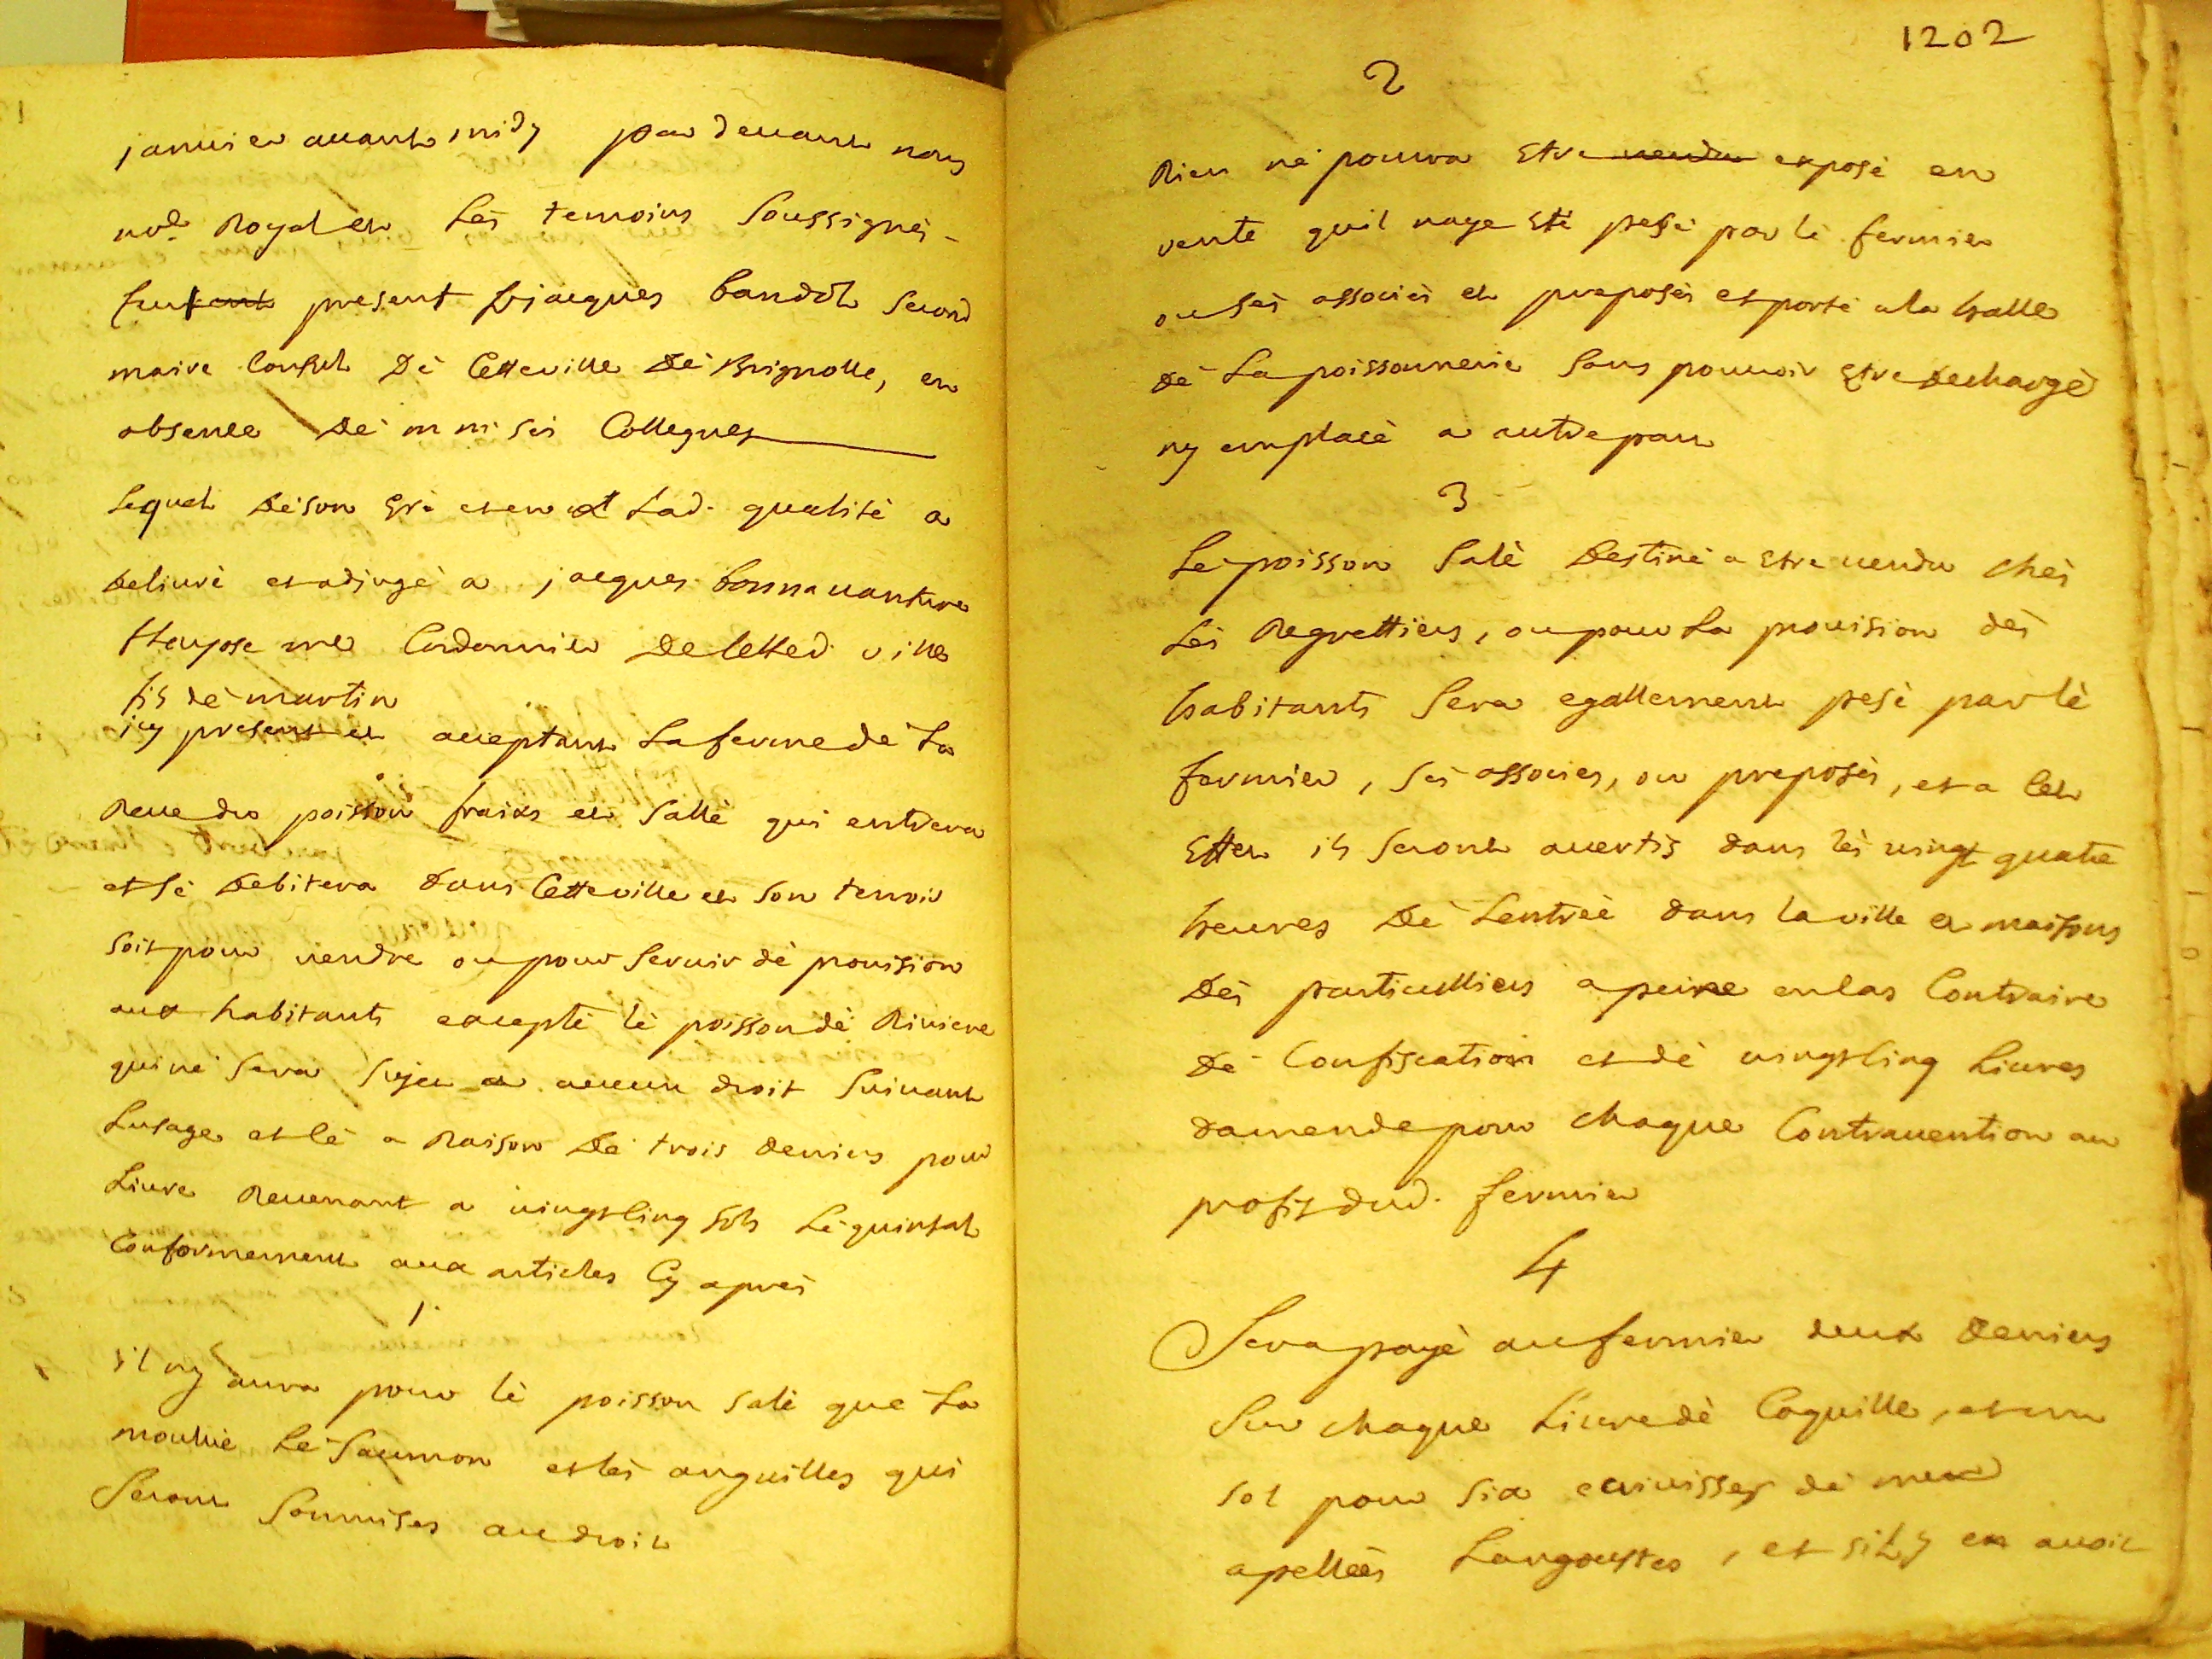 janvier avant midy par devant nous
nore Royal et les temoins soussignés
fut present sr jacques baudol second
maire Consul de Cetteville de Brignolle, en
absence de mrs ses Collegues
lequel de son gré et en lad. qualité a
delivré et adjugé a jacques bonnavanture
me Cordonnier de cetted. ville
fis de martin
icy present et acceptant la ferme de la
Reve du poisson fraix et sallé qui entrera
et se debitera dans Cetteville et son terroir
soit pour vendre ou pour servir de provision
aux habitants excepté le poisson de Riviere
qui ne sera sujet a aucun droit suivant
lusage et le a Raison de trois deniers pour
livre Revenant a vingtcinq sols le quintal
Conformement aux articles Cy aprés
1.
sil ny aura pour le poisson salé que la
moulue le saumon et les anguilles qui
seront soumises au droit
1202
2
Rien ne pourra etre vendu exposé en
vente quil naye eté pesé par le fermier
ou ses associés et preposés et porté a la halle
de la poissonnerie sans pouvoir etre dechargé
ny emplacé a autre part
3
Le poisson salé destiné a etre vendu chés
les Regrattiers, ou pour la provision des
habitants sera egallement pesé par le
fermier, ses associes, ou preposés, et a cet
effet ils seront avertis dans les vingt quatre
heures de lentrée dans la ville et maisons
des particulliers a peine en cas Contraire
de Confiscation et de vingtcinq livres
damende pour chaque Contravention au
profit dud. fermier
4
Sera payé au fermier deux deniers
sur chaque livre de Coquille, et un
sol pour six ecrivisses de mer
apellées langoustes, et sil y en avoit